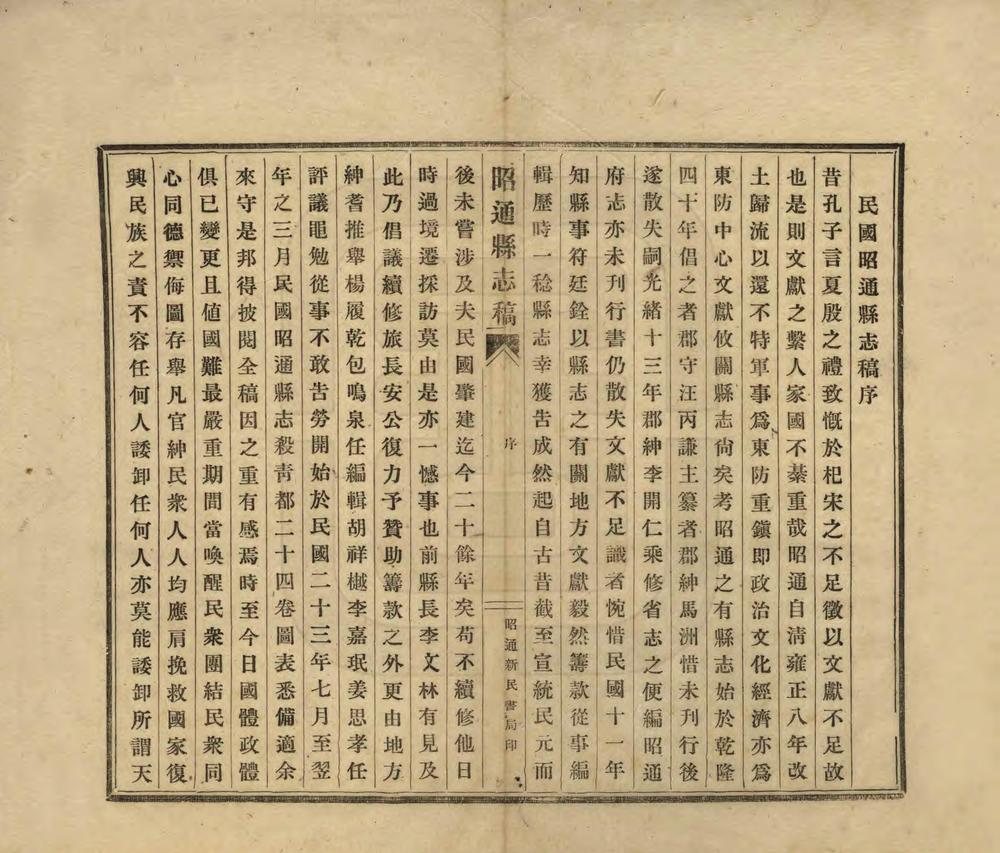 民國昭通縣志稿序
昔孔子言夏殷之禮致慨於杞宋之不足徵以文獻不足故
也是則文獻之繫人家國不綦重哉昭通自清雍正八年改
土歸流以還不特軍事爲東防重鎭即政治文化經濟亦爲
東防中心文獻攸關縣志尙矣考昭通之有縣志始於乾隆
四十年倡之者郡守汪丙謙主纂者郡紳馬洲惜未刊行後
遂散失嗣光緒十三年郡紳李開仁乘修省志之便編昭通
府志亦未刊行書仍散失文獻不足識者惋惜民國十一年
知縣事符廷銓以縣志之有關地方文獻毅然籌款從事編
輯歷時一稔縣志幸獲吿成然起自古昔截至宣統民元而
昭通縣志稿
序
昭通新民書局印
後未嘗涉及夫民國肇建迄今二十餘年矣苟不續修他日
時過境遷採訪莫由是亦一憾事也前縣長李文林有見及
此乃倡議續修旅長安公復力予贊助籌款之外更由地方
紳耆推舉楊履乾包鳴泉任編輯胡祥樾李嘉珉姜思孝任
評議黽勉從事不敢吿勞開始於民國二十三年七月至翌
年之三月民國昭通縣志殺靑都二十四卷圖表悉備適余
來守是邦得披閱全稿因之重有感焉時至今日國體政體
俱已變更且値國難最嚴重期間當喚醒民衆團結民衆同
心同德禦侮圖存舉凡官紳民衆人人均應肩挽救國家復
興民族之責不容任何人諉卸任何人亦莫能諉卸所謂天